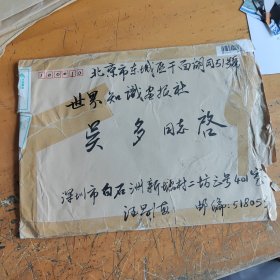 北京市东城区干面胡同51號
世界知識画报社
吴多同志 启
深圳市白石洲新塘村二坊三号401室
邮编:51805